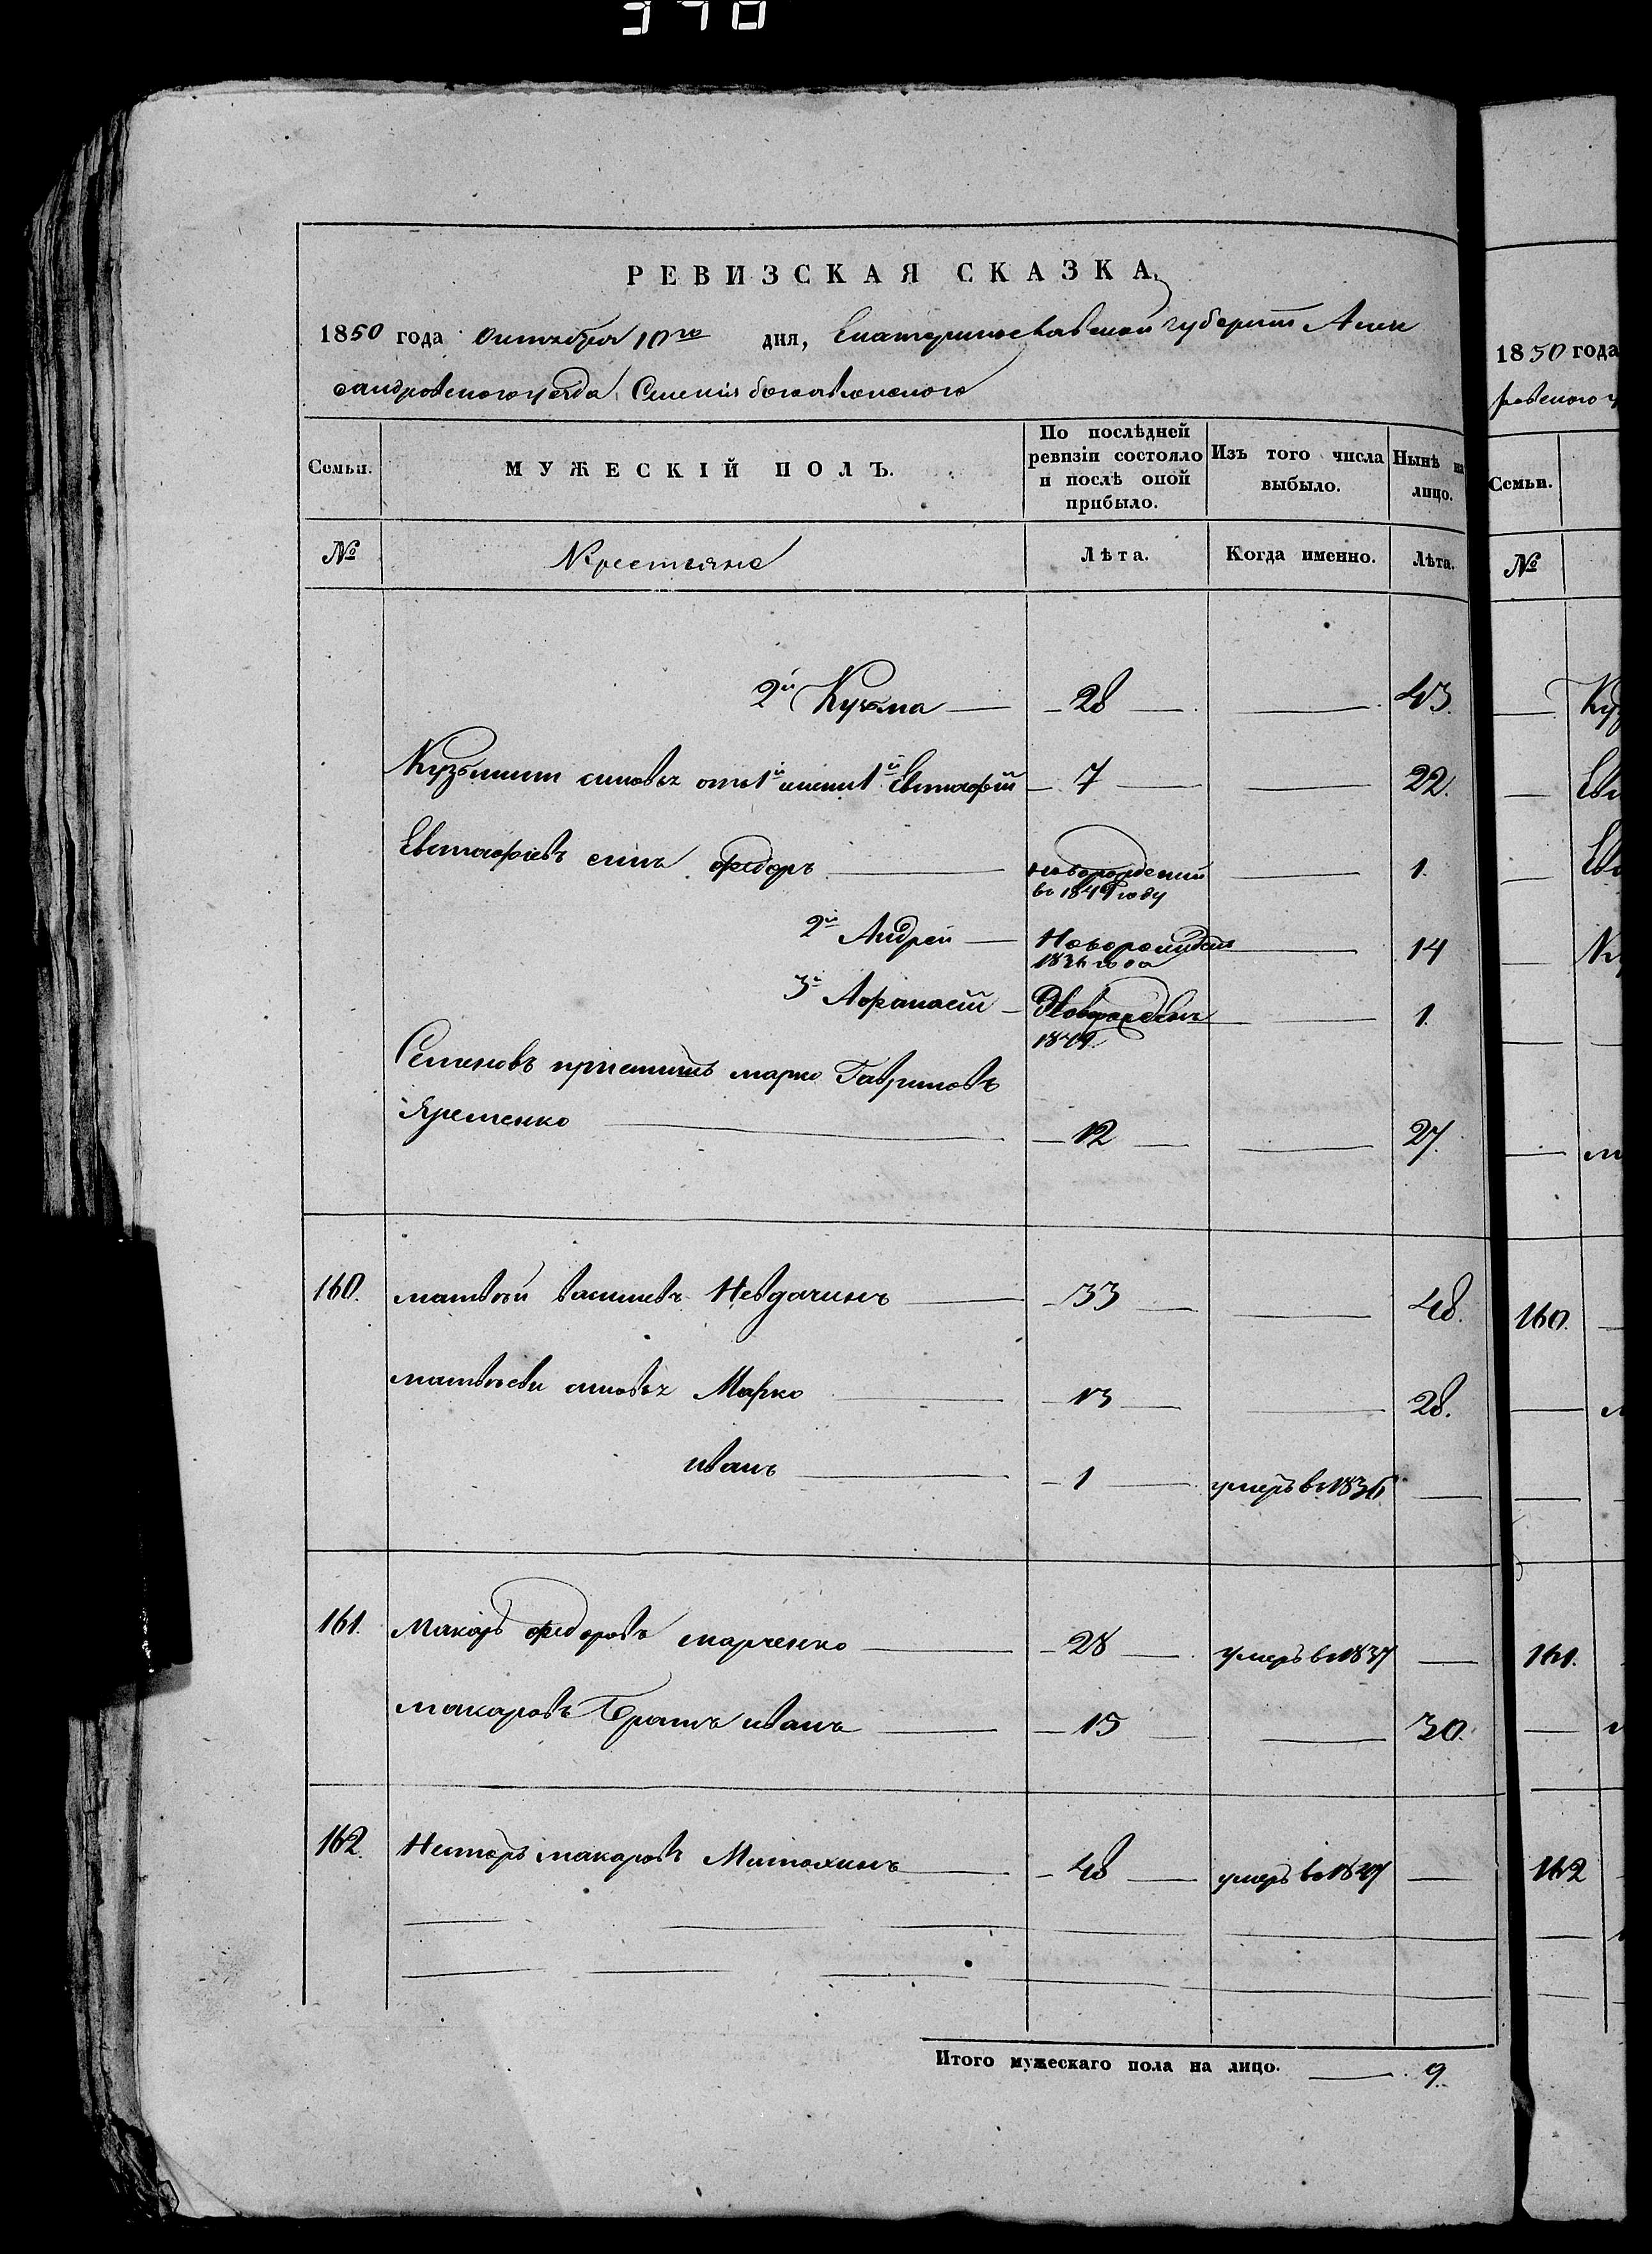 370
РЕВИЗСКАЯ СКАЗКА,
1850 года Октября 10го дня, Екатеринославской губернии Алек
сандровского уезда, Селенія богоявленского
Семьи.
МУЖЕСКІЙ ПОЛЪ.
По послѣдней ревизіи состояло и послѣ оной прибыло.
Изъ того числа выбыло.
Нынѣ на лицо.
№ Крестьяне Лѣта. Когда именно. Лѣта.
2й Кузьма — 28 — — 43.
Кузьмины сыновья 1й Евстафій — 7 — — 22.
Евстафіевъ сынъ федоръ — новорожденый — 1.
въ 1849 году
2й Андрей — Новорожден — 14
1836 года
3й Афанасій — Новорожденъ — 1.
1849.
Семеновъ пріемышъ марко Гавриловъ
Яременко — 12 — — 27.
160. матвѣй васильевъ Невдачинъ — 33 — — 48.
матвѣеви сыновья Марко — 13 — — 28.
иванъ — 1 — умеръ в 1836 —
161. Макаръ федоровъ марченко — 28 — умеръ в 1837 —
макаровъ Братъ иванъ — 15 — — 30.
162. Несторъ макаровъ Митохинъ — 48 — умеръ в 1847 —
Итого мужескаго пола на лицо. — 9.
1850 года
Семьи.
№
160.
161.
162